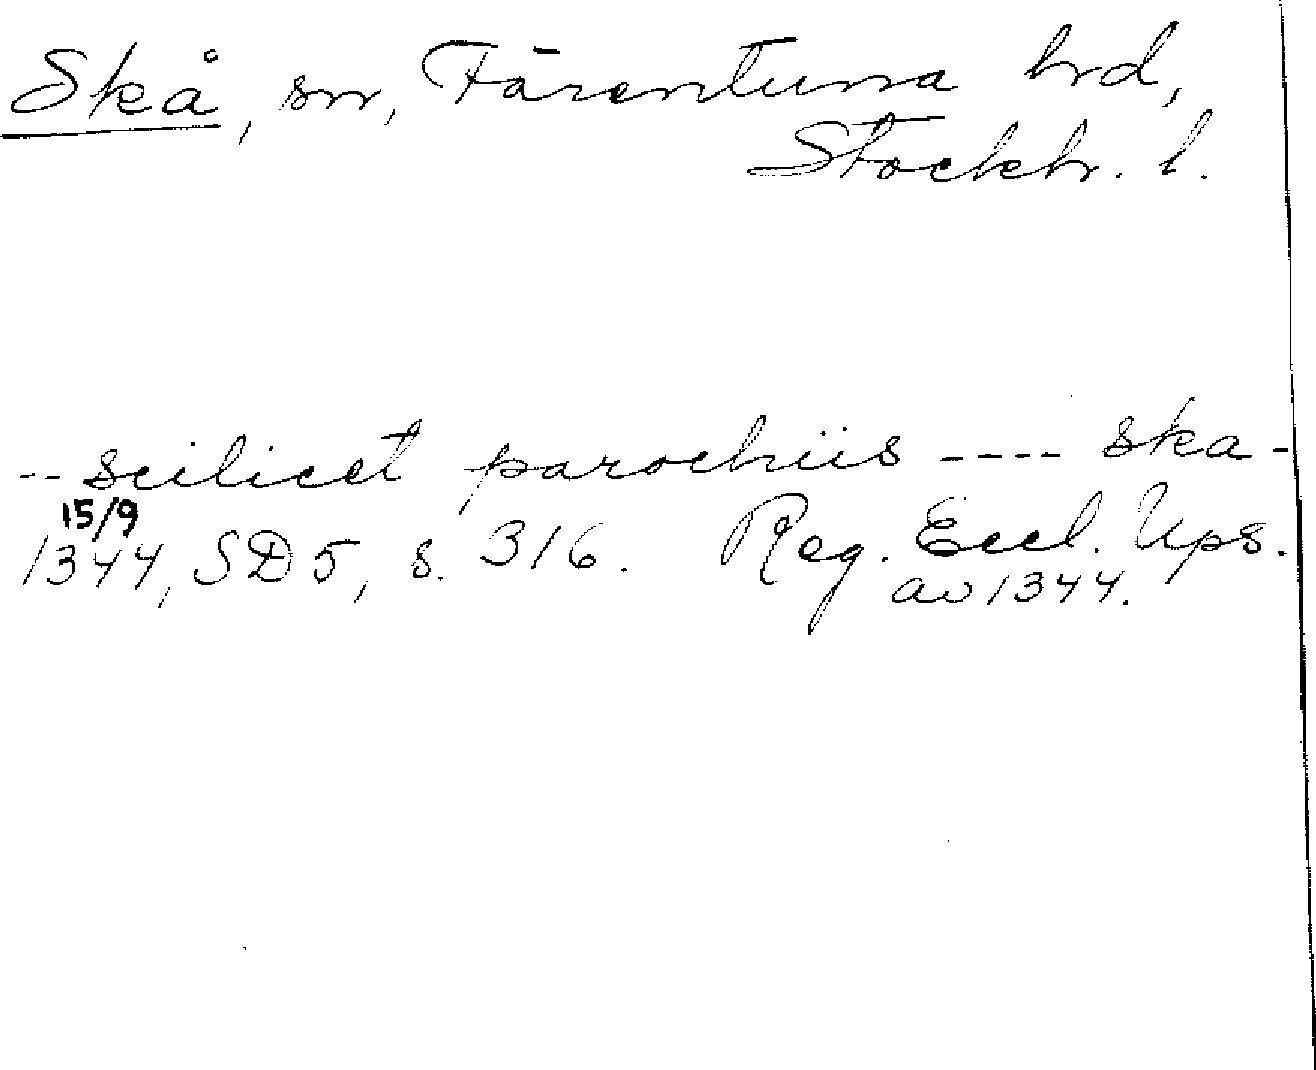 Skå, sn, Färentuna hrd,
Stockh. l.
-- scilicet parochiis ---- ska -
15/9
1344, SD 5, s. 316. Reg. Eccl. Ups.
av 1344.